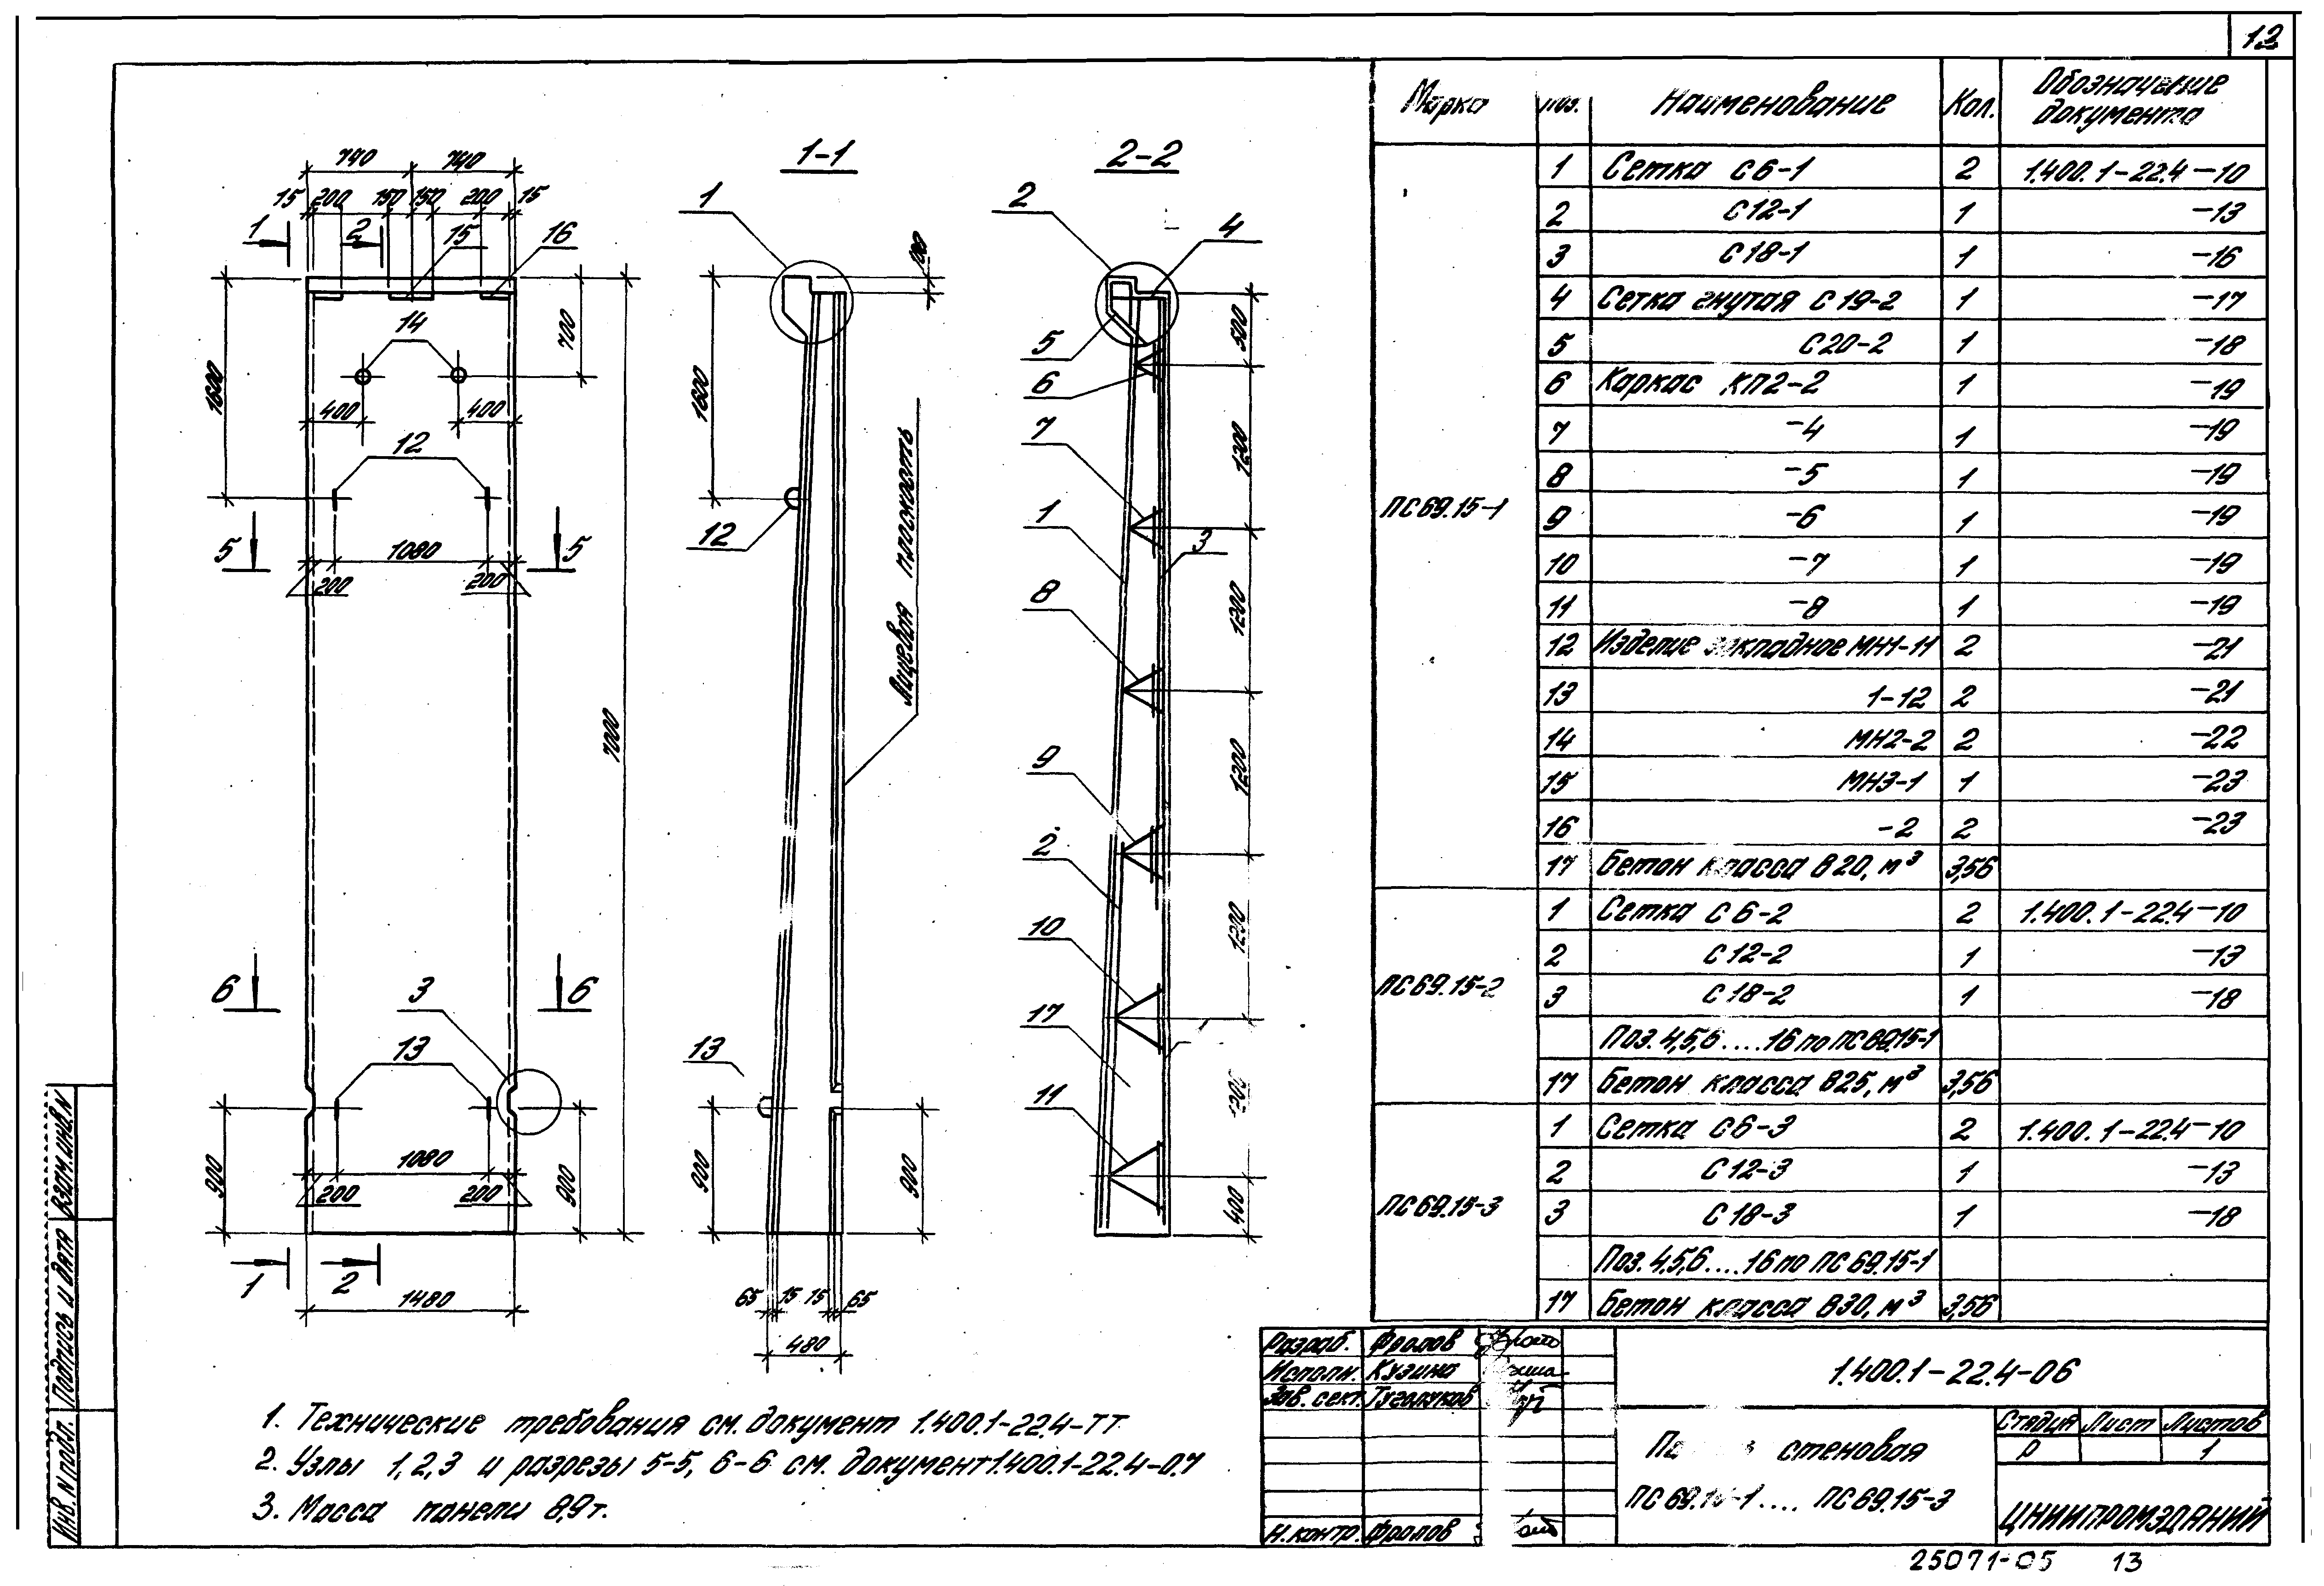 12
740 740
15 200 150 150 200 15
1 2 15 16
1600
700
14
400 400
12
5 1080 5
200 200
7000
6 3 6
13
900 1080 900
200 200
1 2
1480
1-1
1
100
1600
12
Лицевая плоскость
13
900 900
65 15 15 65
480
2-2
2
4
500
5
6
7 1200
1
3
8 1200
9 1200
2
10 1200
17
11
400
Марка Поз. Наименование Кол. Обозначение документа
ПС69.15-1
1 Сетка С6-1 2 1.400.1-22.4-10
2 С12-1 1 -13
3 С18-1 1 -16
4 Сетка гнутая С19-2 1 -17
5 С20-2 1 -18
6 Каркас КП2-2 1 -19
7 -4 1 -19
8 -5 1 -19
9 -6 1 -19
10 -7 1 -19
11 -8 1 -19
12 Изделие закладное МН1-11 2 -21
13 1-12 2 -21
14 МН2-2 2 -22
15 МН3-1 1 -23
16 -2 2 -23
17 Бетон класса В20, м³ 3,56
ПС69.15-2
1 Сетка С6-2 2 1.400.1-22.4-10
2 С12-2 1 -13
3 С18-2 1 -18
Поз. 4,5,6....16 по ПС69.15-1
17 Бетон класса В25, м³ 3,56
ПС69.15-3
1 Сетка С6-3 2 1.400.1-22.4-10
2 С12-3 1 -13
3 С18-3 1 -18
Поз. 4,5,6....16 по ПС69.15-1
17 Бетон класса В30, м³ 3,56
1. Технические требования см. документ 1.400.1-22.4-ТТ.
2. Узлы 1,2,3 и разрезы 5-5, 6-6 см. документ 1.400.1-22.4-07
3. Масса панели 8,9т.
Разраб. Фролов
Исполн. Кузина
Зав. сект. Туголуков
Н.контр. Фролов
1.400.1-22.4-06
стеновая
ПС69.15-1.... ПС69.15-3
Стадия Лист Листов
Р 1
ЦНИИПРОМЗДАНИЙ
25071-05 13
Инв. N подл. Подпись и дата Взам. инв. N